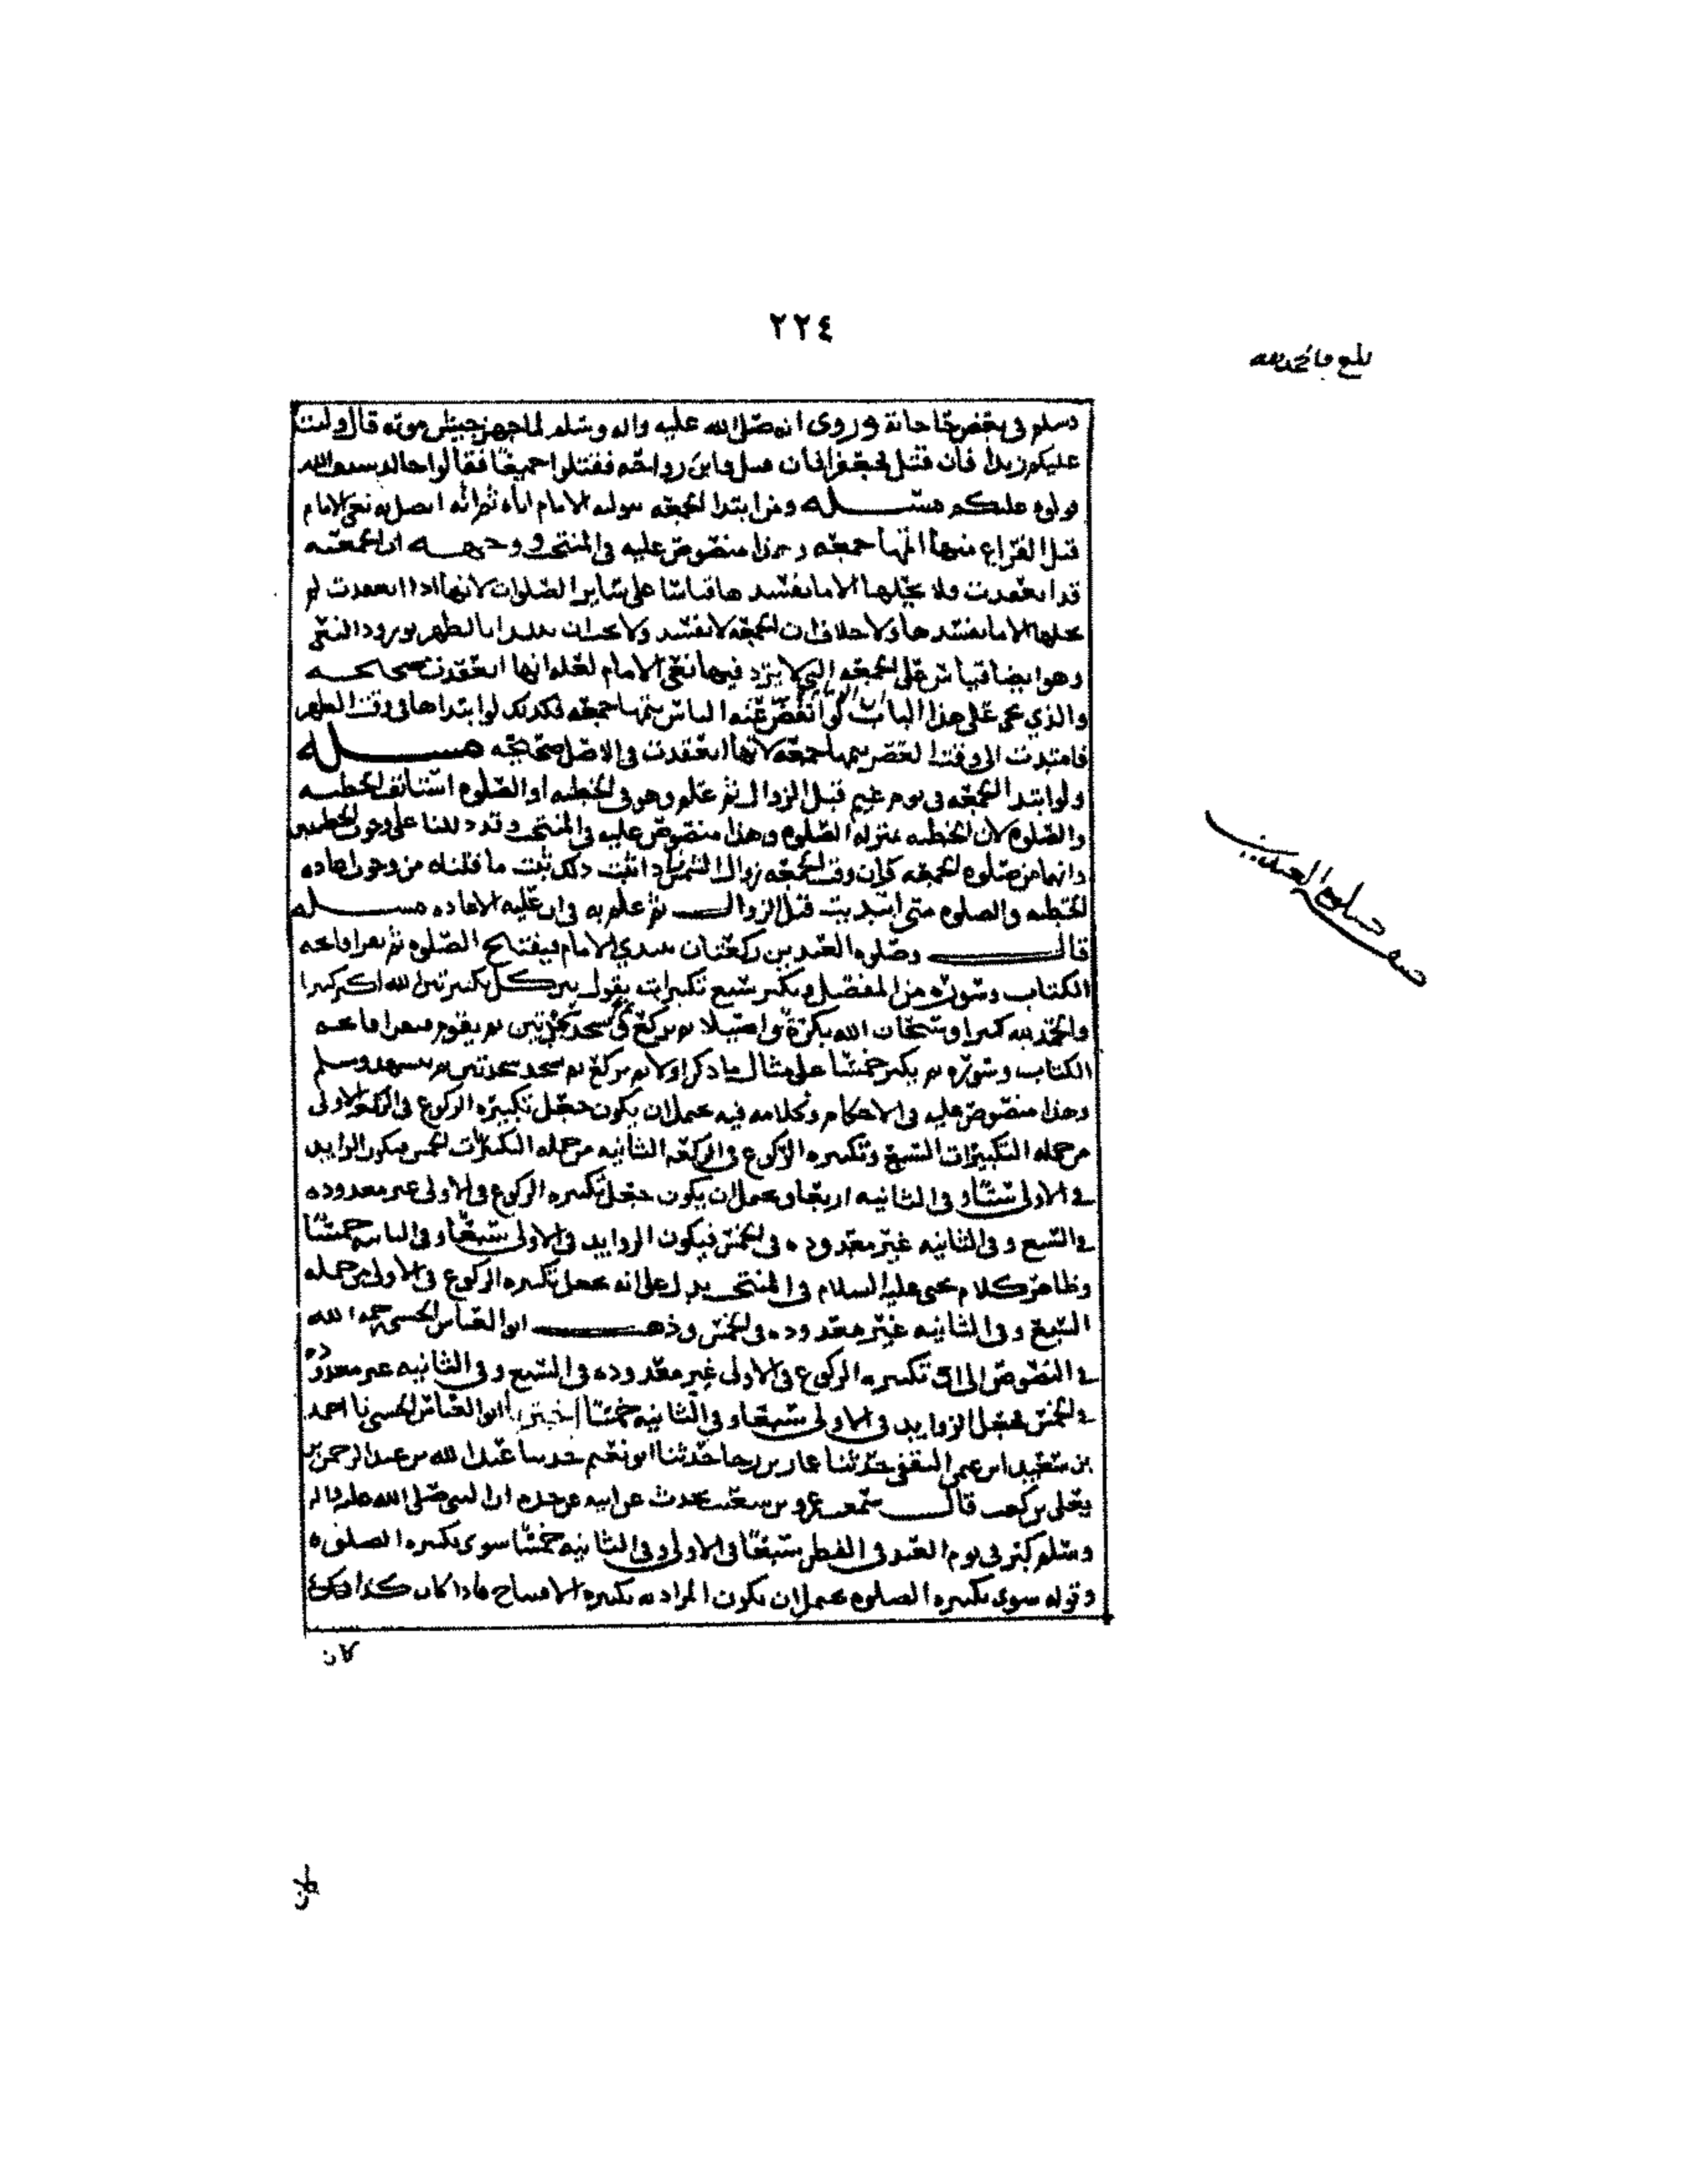 ٢٢٤
بلغ والحمد لله
وسلم في بعض حاجاته وروى انه صلى الله عليه واله وسلم لما جهز جيش موته قال وليت
عليكم زيدا فان قتل فجعفر فان قتل فابن رواحه فقتلوا جميعا فقالوا خالد سيف الله
عليكم مسئله ومن ابتدا الجمعه الامام اياه ثم انه اتصل به نعي الامام
قبل الفراغ منها اتمها جمعه وهذا منصوص عليه في المنتخب ووجهه ان الجمعه
قد انعقدت فلا يحيلها الا ما يفسدها قياسا على ساير الصلوات لانها اذا انعقدت لم
يحلها الا ما يفسدها ولا خلاف ان الجمعه لا تفسد ولا بالظهر بورود النعي
وهو ايضا قياس على الجمعه التي لا يرد فيها نعي الامام لعله انها انعقدت صحيحه
والذي يجي على هذا الباب لو انفض عنه الناس يتمها جمعه فكذلك لو ابتداها في وقت الظهر
فامتدت الى وقت العصر يتمها جمعه لانها انعقدت في الاصل صحيحه مسئله
ولو ابتدا الجمعه في يوم غيم قبل الزوال ثم علم وهو في الخطبه او الصلوه استانف الخطبه
والصلوه لان الخطبه بمنزله الصلوه وهذا منصوص عليه في المنتخب وقد دللنا على وجوب الخطبتين
وانهما من صلوه الجمعه وان وقت الجمعه زوال الشمس واذا ثبت ذلك ثبت ما قلناه من وجوب اعاده
الخطبه والصلوه متى ابتديت قبل الزوال ثم علم به في ان عليه الاعاده مسئله
قال وصلوه العيدين ركعتان يبتدي الامام فيفتتح الصلوه ثم يقرا فاتحه
الكتاب وسوره من المفصل ويكبر سبع تكبيرات يقول بين كل تكبيرتين الله اكبر كبيرا
والحمد لله كثيرا وسبحان الله بكرة واصيلا ثم يركع ثم يسجد سجدتين ثم يقوم فيقرا فاتحه
الكتاب وسوره ثم يكبر خمسا على مثال ما ذكر اولا ثم يركع ثم يسجد سجدتين ثم يتشهد وسلم
وهذا منصوص عليه في الاحكام وكلامه فيه يحتمل ان يكون جعل تكبيره الركوع في الركعه الاولى
من جمله التكبيرات السبع وتكبيره الركوع في الركعه الثانيه من جمله التكبيرات الخمس فيكون الزوايد
في الاولى ستا وفي الثانيه اربعا ويحتمل ان يكون جعل تكبيره الركوع في الاولى غير معدوده
في السبع وفي الثانيه غير معدوده في الخمس فيكون الزوايد في الاولى سبعا وفي الثانيه خمسا
وظاهر كلام يحيى عليه السلام في المنتخب يدل على انه جعل تكبيره الركوع في الاولى من جمله
السبع وفي الثانيه غير معدوده في الخمس وذهب ابو العباس الحسني رحمه الله
في النصوص الى ان تكبيره الركوع في الاولى غير معدوده في السبع وفي الثانيه غير معدوده
في الخمس فجعل الزوايد في الاولى سبعا وفي الثانيه خمسا اخبرنا ابو العباس الحسني نا احمد
بن سعيد الثقفي حدثنا عمار بن رجا حدثنا ابو نعيم حدثنا عبد الله بن عبد الرحمن بن
يعلى بن كعب قال سمعت عمرو بن شعيب يحدث عن ابيه عن جده ان النبي صلى الله عليه واله
وسلم كبر في يوم العيد في الفطر سبعا في الاولى وفي الثانيه خمسا سوى تكبيره الصلوه
وقوله سوى تكبيره الصلوه يحتمل ان يكون المراد به تكبيره الافتتاح فاذا كان كذلك
كان
صفه صلوه العيدين